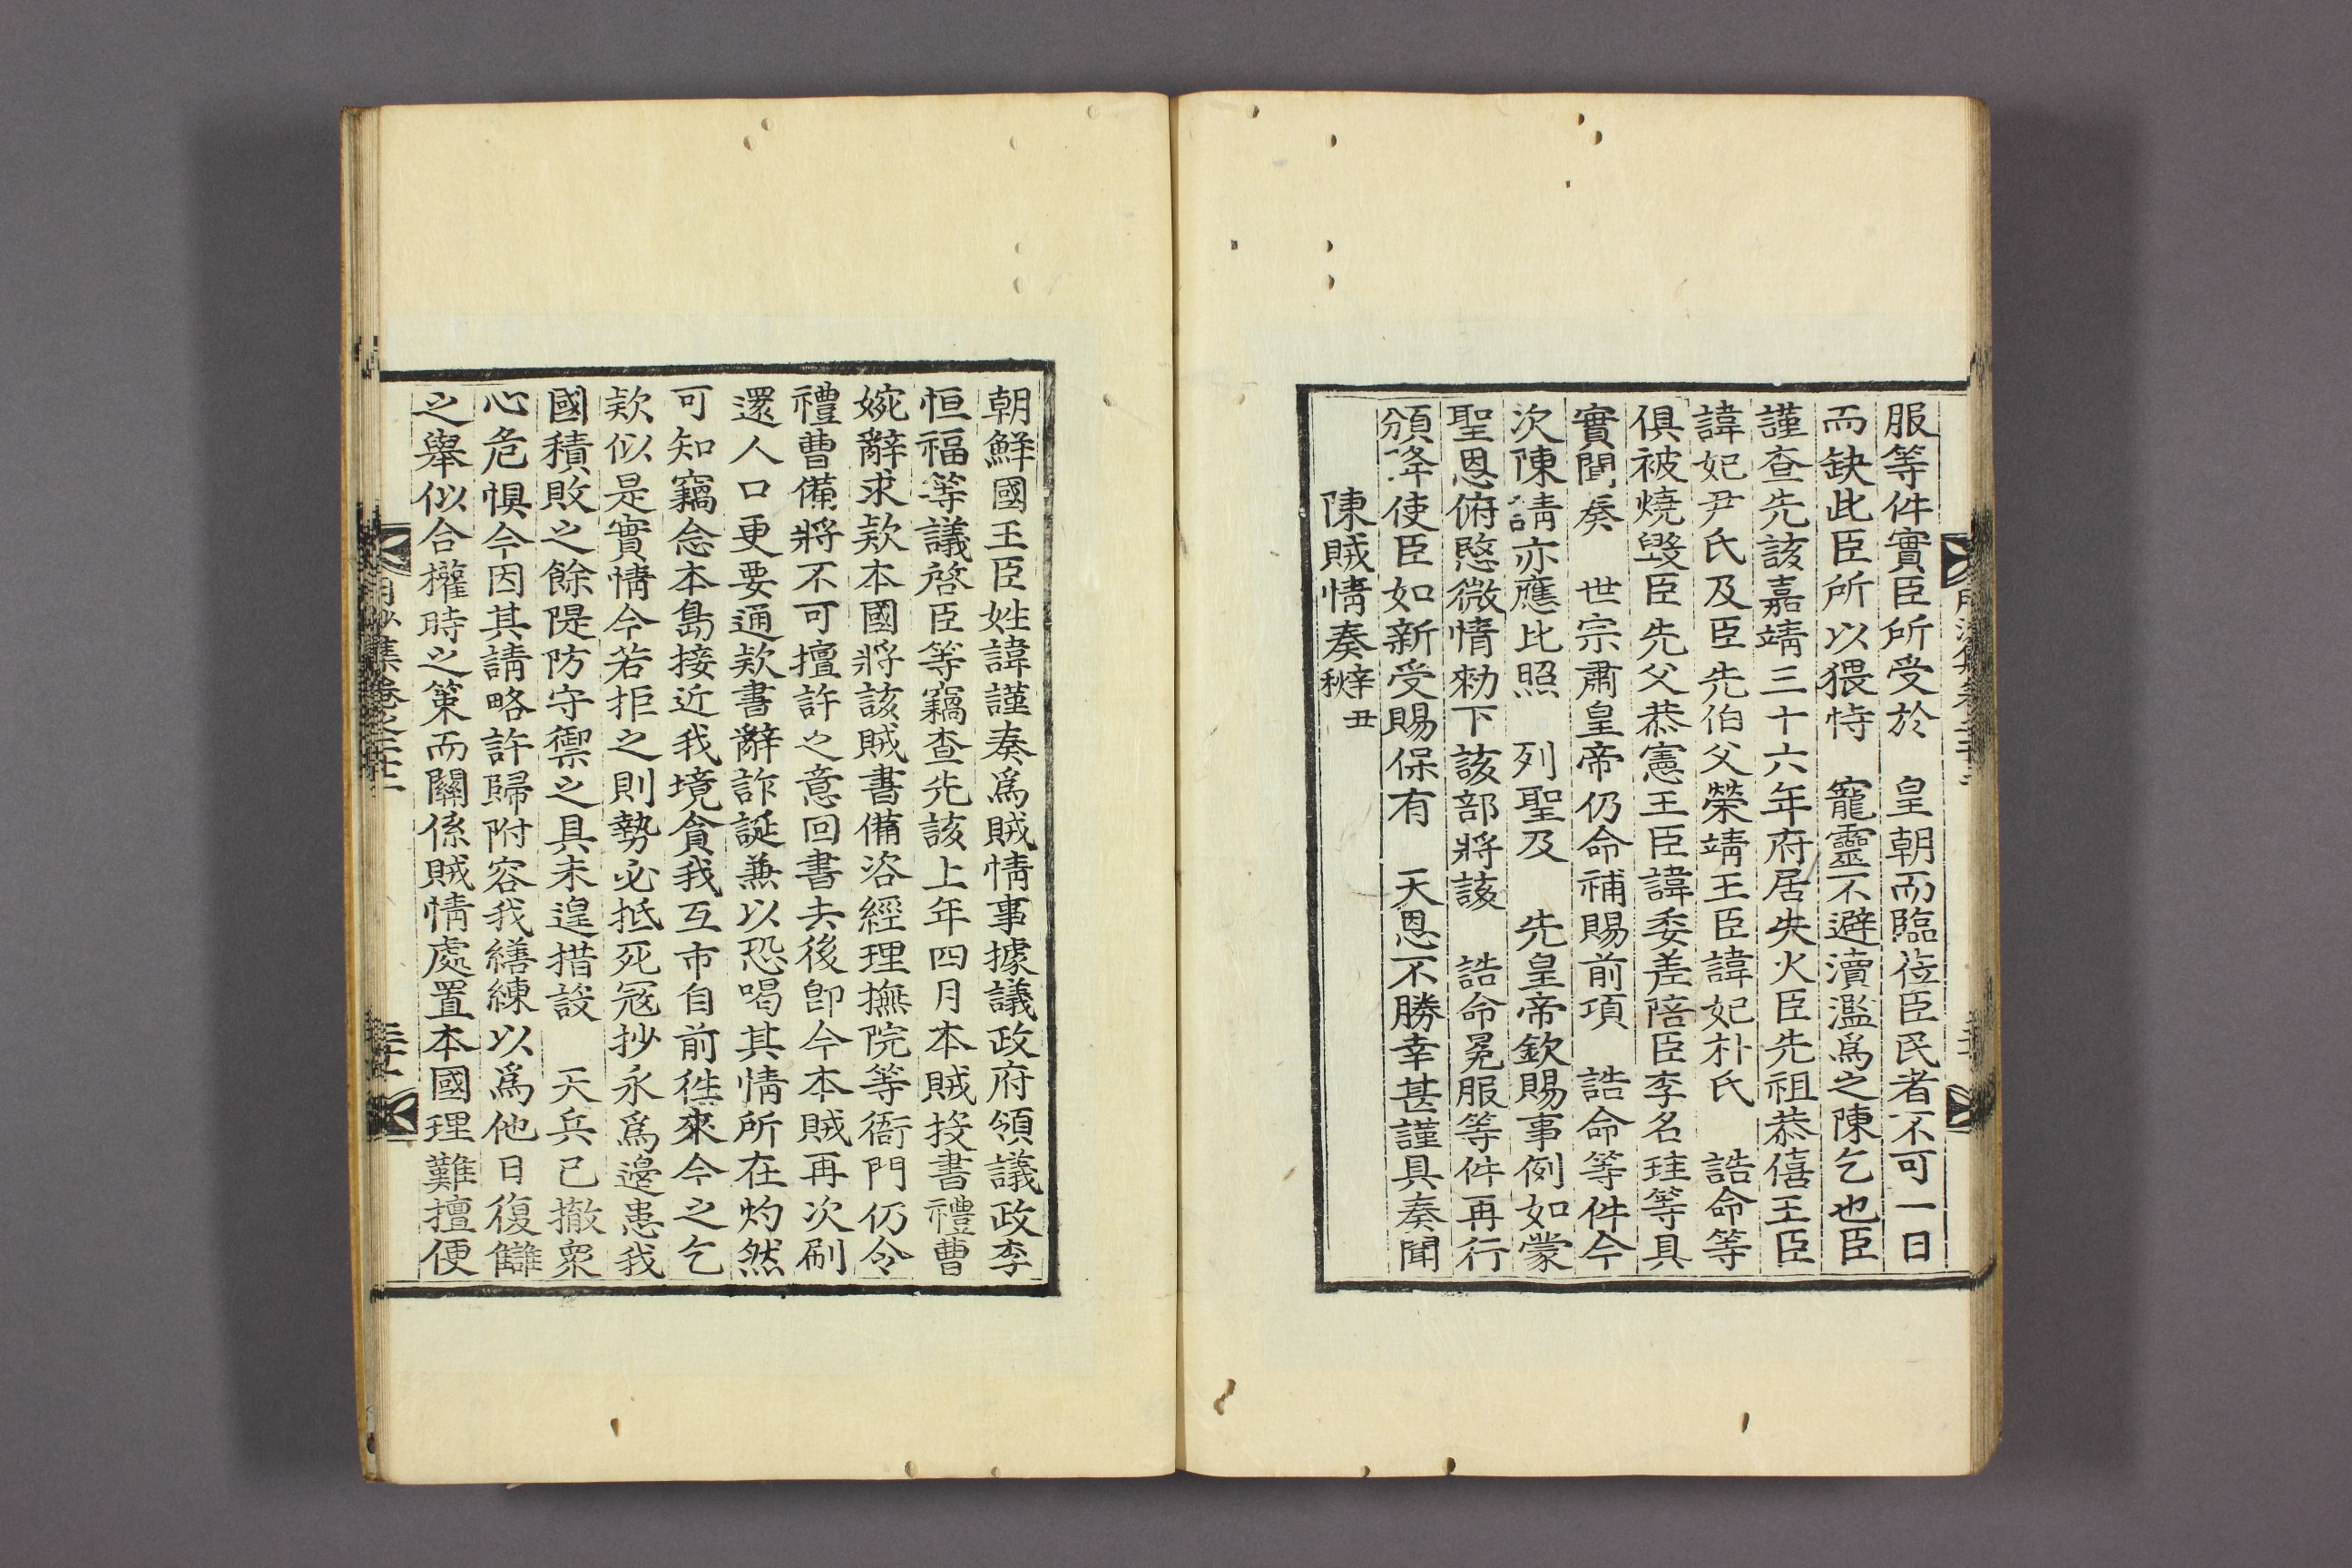 服等件實臣所受於　皇朝而臨莅臣民者不可一日
而缺此臣所以猥恃　寵靈不避瀆濫爲之陳乞也臣
謹查先該嘉靖三十六年府居失火臣先祖恭僖王臣
諱妃尹氏及臣先伯父榮靖王臣諱妃朴氏　誥命等
俱被燒毀臣先父恭憲王臣諱委差陪臣李名珪等具
實聞奏　世宗肅皇帝仍命補賜前項　誥命等件今
次陳請亦應比照　列聖及　先皇帝欽賜事例如蒙
聖恩俯愍微情勑下該部將該　誥命冕服等件再行
頒降使臣如新受賜保有　天恩不勝幸甚謹具奏聞
陳賊情奏辛丑秋
朝鮮國王臣姓諱謹奏爲賊情事據議政府領議政李
恒福等議啓臣等竊查先該上年四月本賊投書禮曹
婉辭求款本國將該賊書備咨經理撫院等衙門仍令
禮曹備將不可擅許之意回書去後卽今本賊再次刷
還人口更要通款書辭詐誕兼以恐喝其情所在灼然
可知竊念本島接近我境貪我互市自前徃來今之乞
款似是實情今若拒之則勢必抵死冦抄永爲邊患我
國積敗之餘隄防守禦之具未遑措設　天兵已撤衆
心危惧今因其請略許歸附容我繕練以爲他日復讎
之舉似合權時之策而關係賊情處置本國理難擅便
集卷之